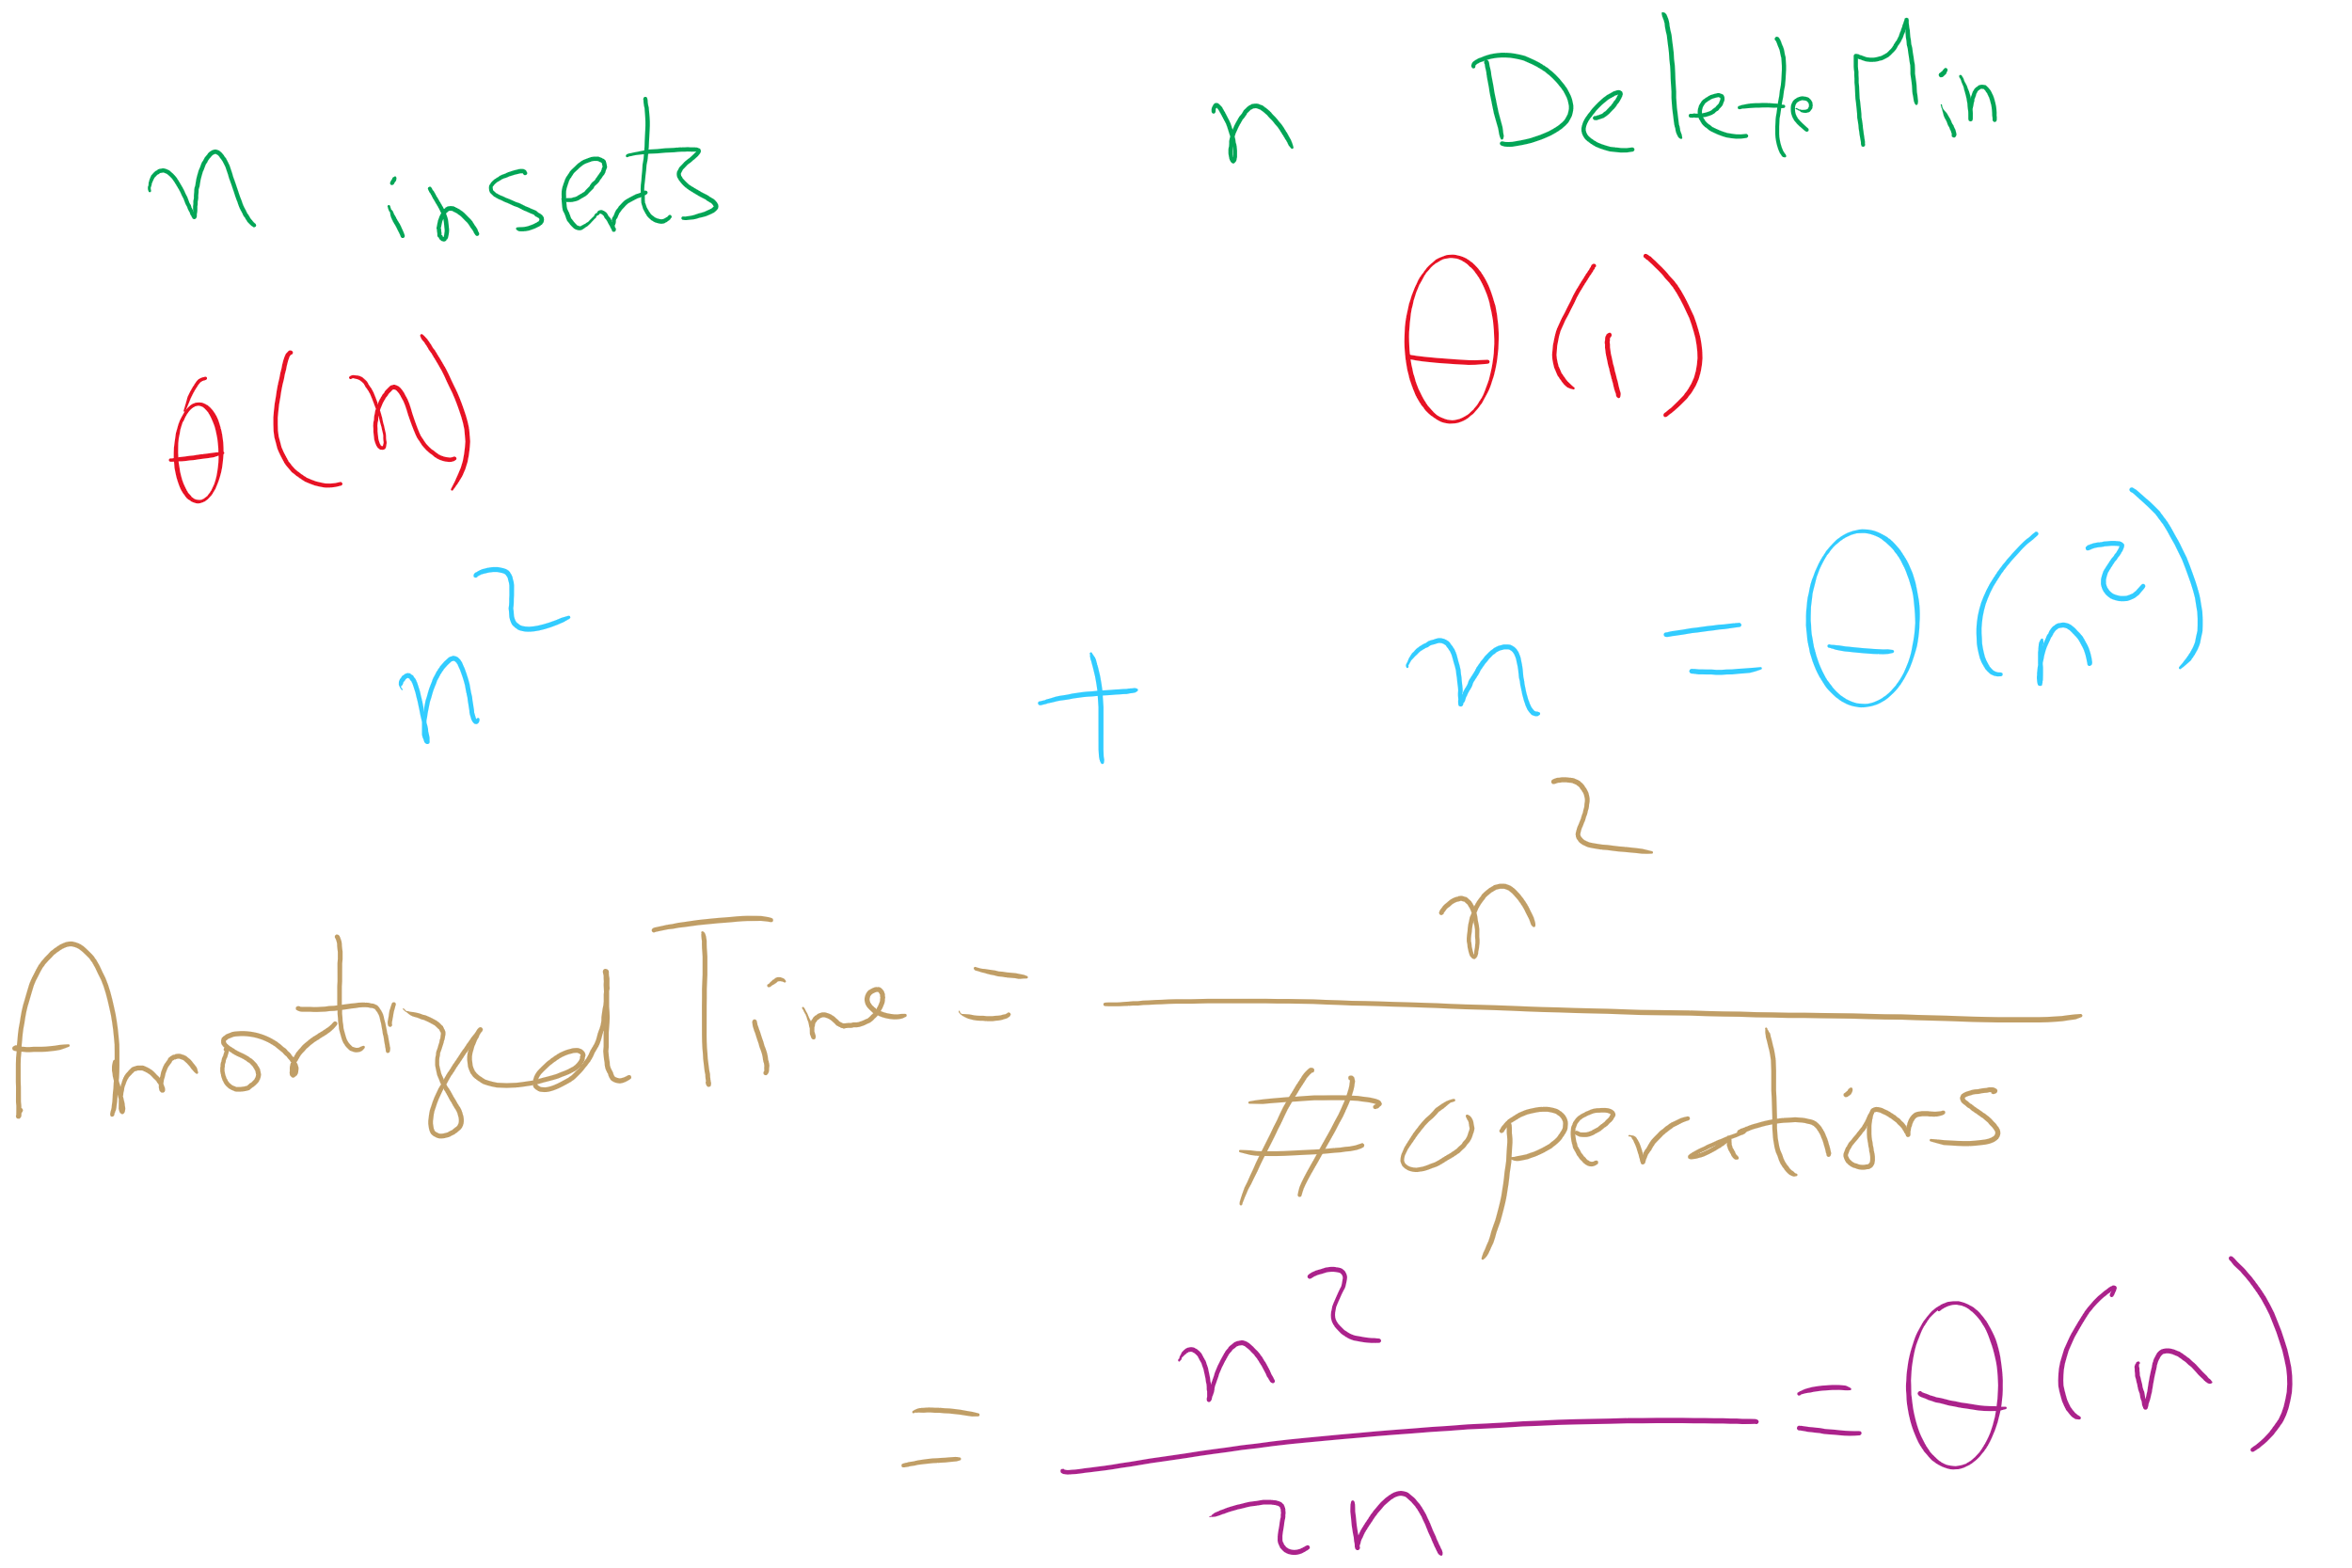 n insets n Delete Min
θ(n) θ(1)
n² + n = θ(n²)
Amortized Time = n²
# operations
= n² / 2n = θ(n)